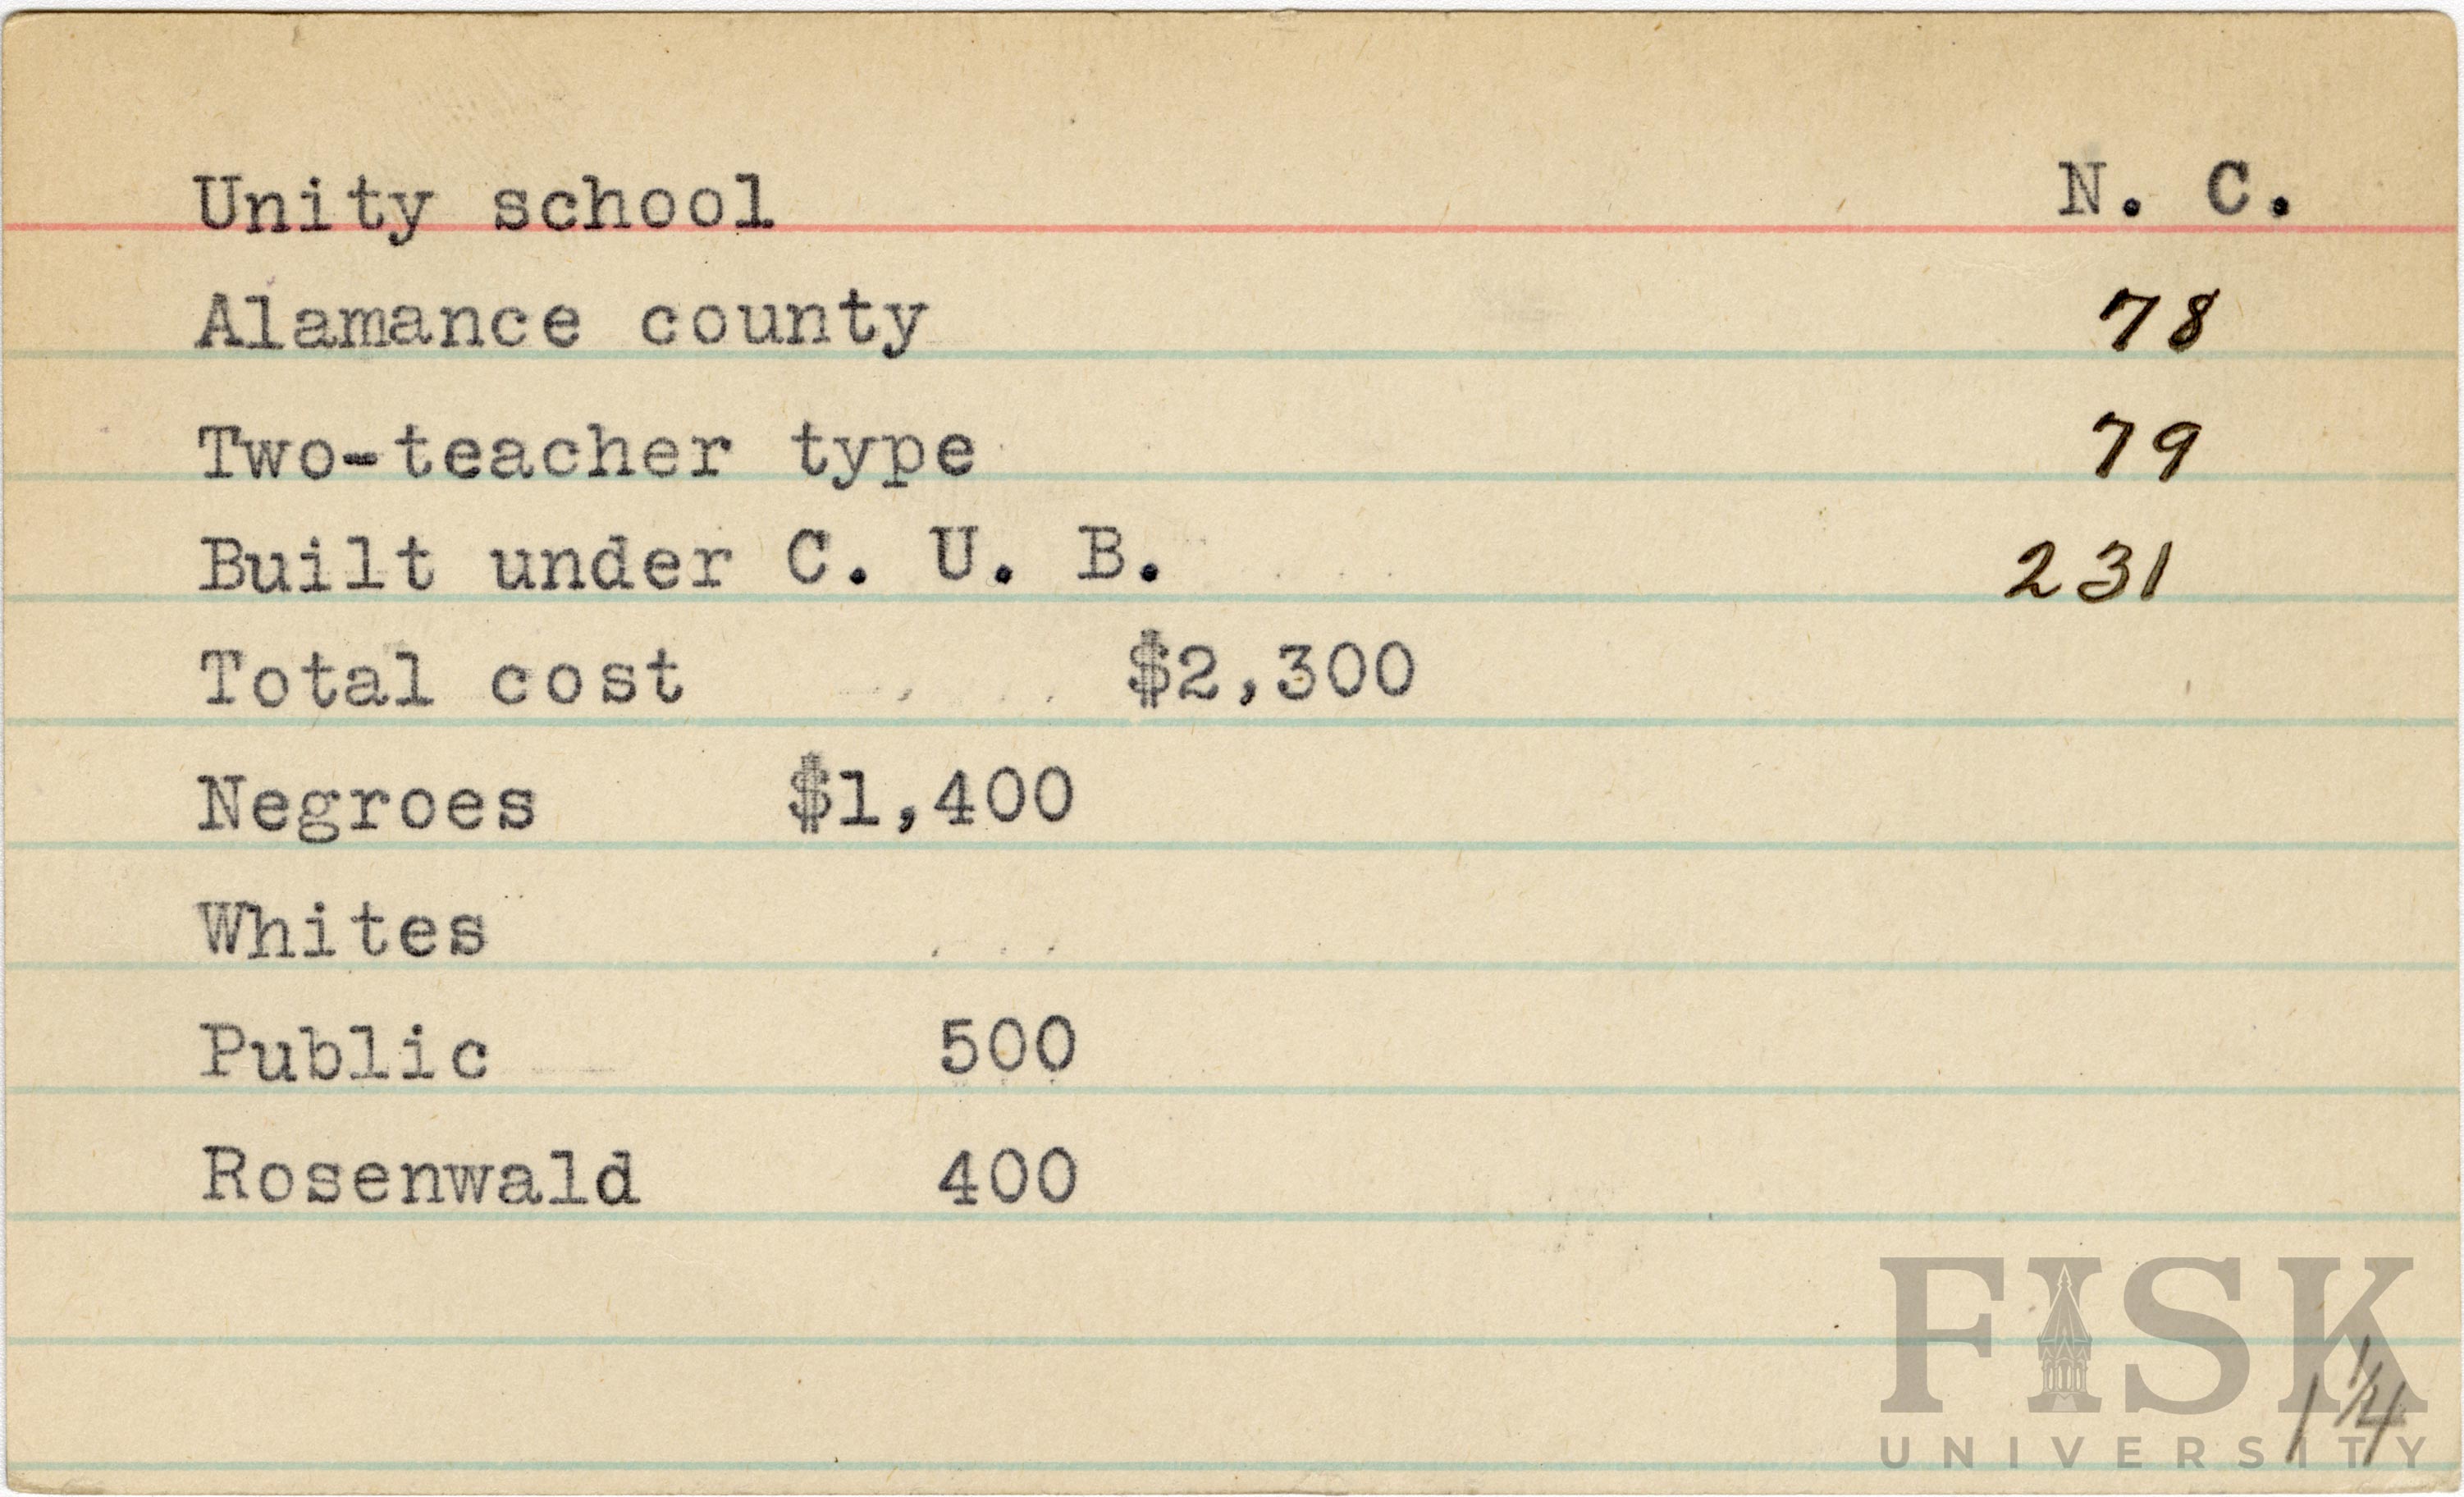 Unity school N. C.
Alamance county 78
Two-teacher type 79
Built under C. U. B. 231
Total cost $2,300
Negroes $1,400
Whites
Public 500
Rosenwald 400
FISK
UNIVERSITY
1 1/4